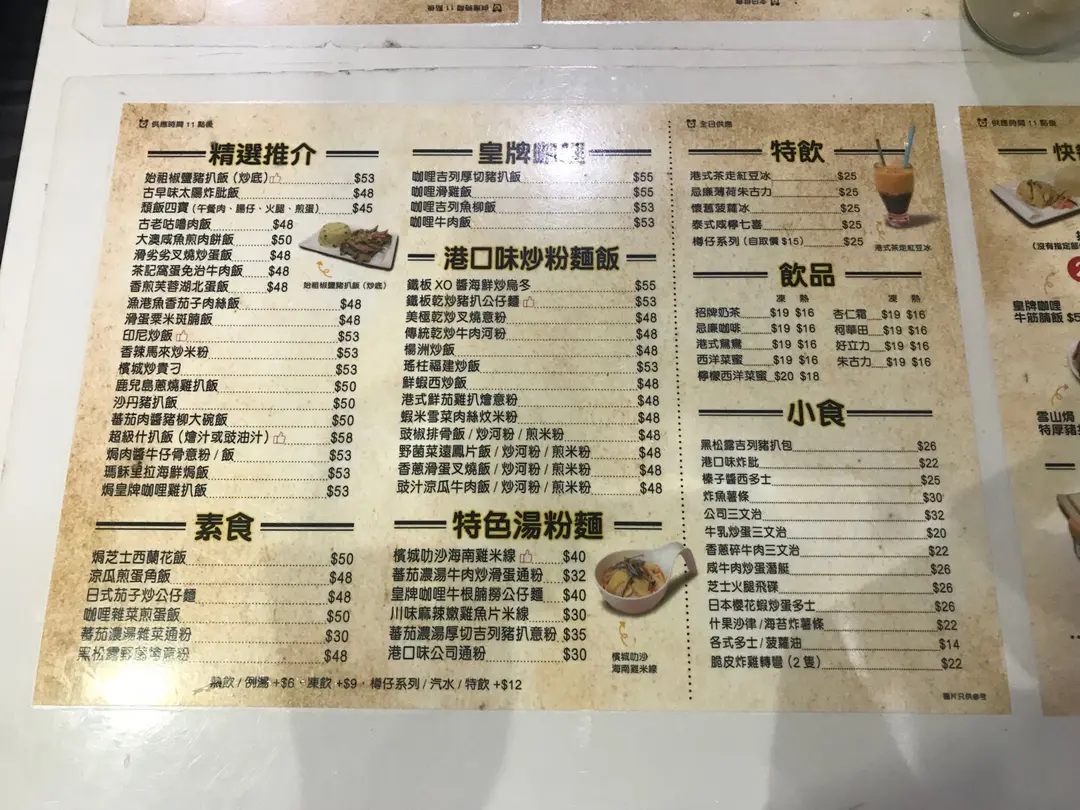 供應時間 11 點後
精選推介
始祖椒鹽豬扒飯 (炒底) $53
古早味太陽炸肶飯 $48
頹飯四寶 (午餐肉、腸仔、火腿、煎蛋) $45
古老咕嚕肉飯 $48
大澳咸魚煎肉餅飯 $50
滑劣劣叉燒炒蛋飯 $48
茶記窩蛋免治牛肉飯 $48
香煎芙蓉湖北蛋飯 $48
漁港魚香茄子肉絲飯 $48
滑蛋粟米斑腩飯 $48
印尼炒飯 $53
香辣馬來炒米粉 $53
檳城炒貴刁 $53
鹿兒島蔥燒雞扒飯 $50
沙丹豬扒飯 $50
蕃茄肉醬豬柳大碗飯 $50
超級什扒飯 (燴汁或豉油汁) $58
焗肉醬牛仔骨意粉 / 飯 $53
瑪穌里拉海鮮焗飯 $53
焗皇牌咖喱雞扒飯 $53
始祖椒鹽豬扒飯 (炒底)
素食
焗芝士西蘭花飯 $50
涼瓜煎蛋角飯 $48
日式茄子炒公仔麵 $48
咖喱雜菜煎蛋飯 $50
蕃茄濃湯雜菜通粉 $30
黑松露野菌燴意粉 $48
皇牌
咖哩吉列厚切豬扒飯 $55
咖哩滑雞飯 $55
咖哩吉列魚柳飯 $53
咖哩牛肉飯 $53
港口味炒粉麵飯
鐵板 XO 醬海鮮炒烏冬 $55
鐵板乾炒豬扒公仔麵 $53
美極乾炒叉燒意粉 $48
傳統乾炒牛肉河粉 $48
楊洲炒飯 $48
瑤柱福建炒飯 $53
鮮蝦西炒飯 $48
港式鮮茄雞扒燴意粉 $48
蝦米雪菜肉絲炆米粉 $48
豉椒排骨飯 / 炒河粉 / 煎米粉 $48
野菌菜遠鳳片飯 / 炒河粉 / 煎米粉 $48
香蔥滑蛋叉燒飯 / 炒河粉 / 煎米粉 $48
豉汁涼瓜牛肉飯 / 炒河粉 / 煎米粉 $48
特色湯粉麵
檳城叻沙海南雞米線 $40
蕃茄濃湯牛肉炒滑蛋通粉 $32
皇牌咖喱牛根腩撈公仔麵 $40
川味麻辣嫩雞魚片米線 $30
蕃茄濃湯厚切吉列豬扒意粉 $35
港口味公司通粉 $30
檳城叻沙
海南雞米線
熱飲 / 例湯 +$6，凍飲 +$9，樽仔系列 / 汽水 / 特飲 +$12
全日供應
特飲
港式茶走紅豆冰 $25
忌廉薄荷朱古力 $25
懷舊菠蘿冰 $25
泰式咸檸七喜 $25
樽仔系列 (自取價 $15) $25
港式茶走紅豆冰
飲品
凍 熱 凍 熱
招牌奶茶 $19 $16 杏仁霜 $19 $16
忌廉咖啡 $19 $16 柯華田 $19 $16
港式鴛鴦 $19 $16 好立力 $19 $16
西洋菜蜜 $19 $16 朱古力 $19 $16
檸檬西洋菜蜜 $20 $18
小食
黑松露吉列豬扒包 $26
港口味炸肶 $22
榛子醬西多士 $25
炸魚薯條 $30
公司三文治 $32
牛乳炒蛋三文治 $20
香蔥碎牛肉三文治 $22
咸牛肉炒蛋潛艇 $26
芝士火腿飛碟 $26
日本櫻花蝦炒蛋多士 $26
什果沙律 / 海苔炸薯條 $22
各式多士 / 菠蘿油 $14
脆皮炸雞轉彎 (2 隻) $22
圖片只供參考
供應時間 11 點後
快
(沒有指定
皇牌咖哩
牛筋腩飯
雪山焗
特厚豬